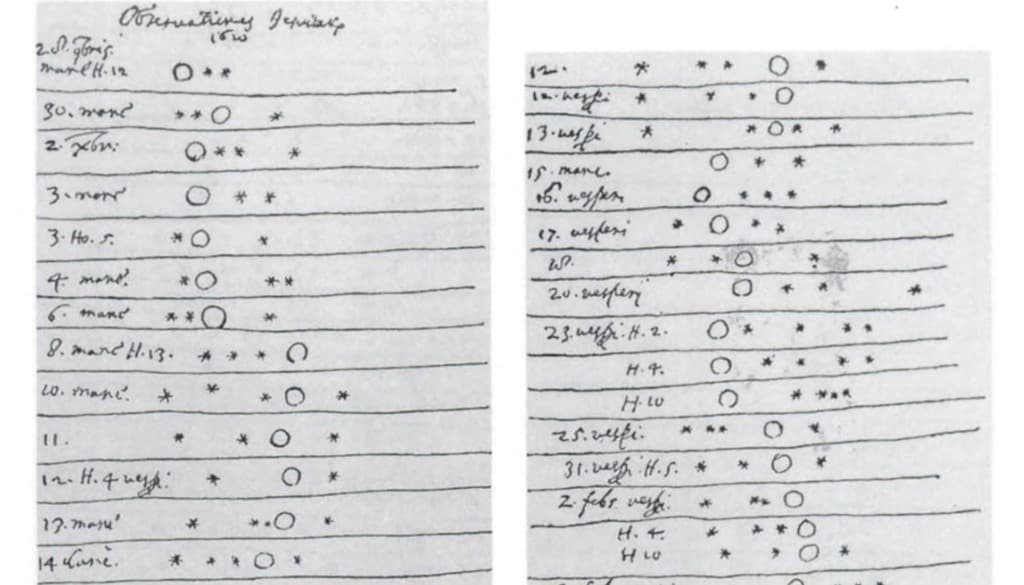 Observationes
1610
mane H. 12
30. mane
2. xbri:
3. mane
3. Ho. 5.
4. mane.
6. mane
8. mane H. 13.
10. mane.
11.
12. H. 4 vespi:
13. mane
14
12.
12. vespi
13 vespi
15. mane.
16. vesperi
17. vesperi
18.
20. vesperi
23. vespi. H. 2.
H. 4.
H. 10
25. vespi.
31. vespi H. 5.
2. febr. vespi
H. 4.
H 10